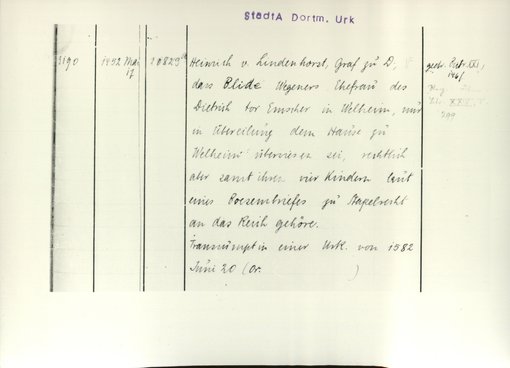 StadtA Dortm. Urk
3190 1452 Mai 17 10829
Heinrich v. Lindenhorst, Graf zu D,
dass Blide Wegeners Ehefrau des
Dietrich tor Emscher in Welheim, nur
in Übereilung dem Hause zu
Welheim überwiesen sei, rechtlich
aber samt ihren vier Kindern laut
eines Boezembriefes zu Stapelrecht
an das Reich gehöre.
Transsumpt in einer Urk. von 1582
Juni 20 (Or. )
gedr. Beitr.
209